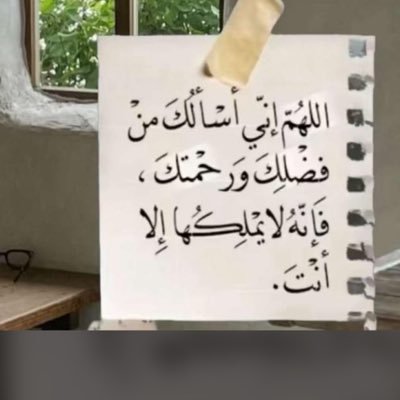 اللهُمّ إنّي أسْألُكَ منْ
فضْلِكَ وَرحْمتكَ ،
فَإنّهُ لايمْلِكُها إِلا
أنْتَ.